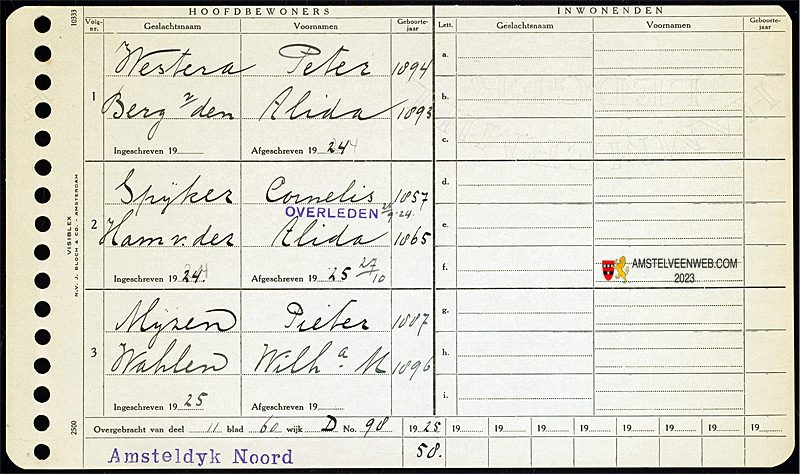 HOOFDBEWONERS INWONENDEN
10333 Volg-nr. Geslachtsnaam Voornamen Geboorte-jaar Lett. Geslachtsnaam Voornamen Geboorte-jaar
Westera Peter 1894 a.
1 Berg v den Alida 1893 b.
Ingeschreven 19 Afgeschreven 19 24 c.
Spijker Cornelis 1857 d.
OVERLEDEN 9.24.
2 Ham v der Alida 1865 e.
Ingeschreven 19 24. Afgeschreven 19 25 27/10 f.
AMSTELVEENWEB.COM
2023
Mijzen Pieter 1887 g.
3 Wahlen Wilh a. M 1896 h.
Ingeschreven 19 25 Afgeschreven 19 i.
Overgebracht van deel 11 blad 60 wijk D No. 98 1925 19 19 19 19 19 19 19
Amsteldyk Noord 58.
VISIBLEX
N.V. J. BLOCH & CO. - AMSTERDAM
2500